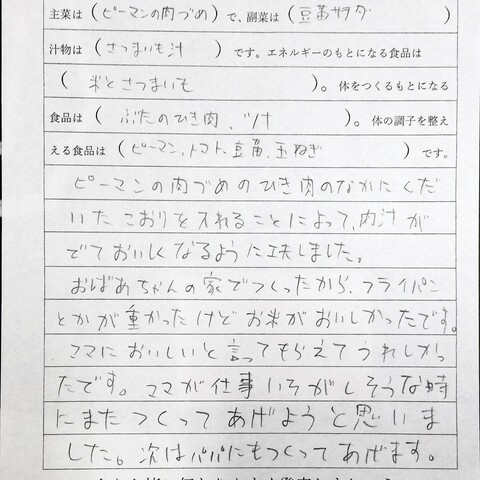 主菜は(ピーマンの肉づめ)で、副菜は(豆苗サラダ)
汁物は(さつまいも汁)です。エネルギーのもとになる食品は
(米とさつまいも)。体をつくるもとになる
食品は(ぶたのひき肉、ツナ)。体の調子を整え
える食品は(ピーマン,トマト,豆苗,玉ねぎ)です。
ピーマンの肉づめのひき肉のなかにくだ
いたこおりを入れることによって、肉汁が
でておいしくなるように工夫しました。
おばあちゃんの家でつくったから、フライパン
とかが重かったけどお米がおいしかったです。
ママにおいしいと言ってもらえてうれしかっ
たです。ママが仕事いそがしそうな時
にまたつくってあげようと思いま
した。次はパパにもつくってあげます。